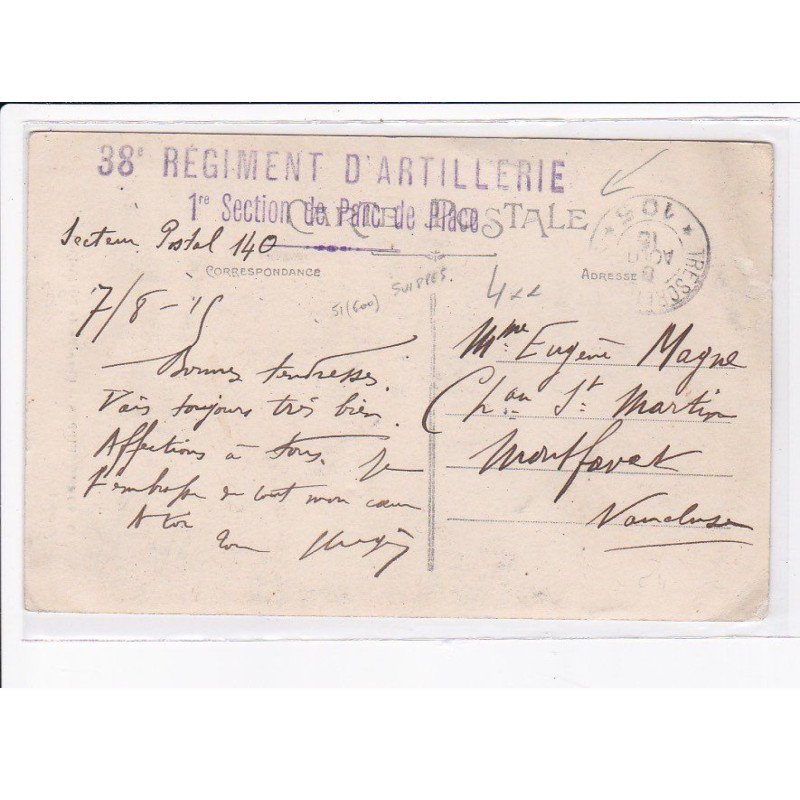 38e RÉGIMENT D'ARTILLERIE
1re Section de Parc de Place
CARTE POSTALE
Secteur Postal 140
CORRESPONDANCE
ADRESSE
TRESOR
7/8-15
51(600) SUIPPES.
4++
Bonnes tendresses.
Vais toujours très bien.
Affections à tous. Je
t'embrasse de tout mon cœur
A toi
Ton
Mme Eugène Magne
Chau St Martin
Montfavet
Vaucluse